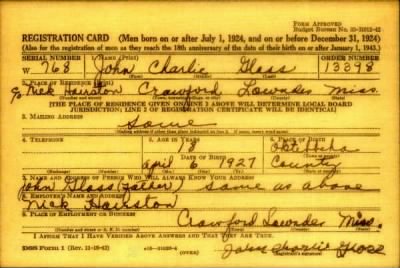 FORM APPROVED
Budget Bureau No.
REGISTRATION CARD (Men born on or after July 1, 1924, and on or before December 31, 1924)
(Also for the registration of men as they reach the 18th anniversary of the date of their birth on or after January 1, 1943.)
SERIAL NUMBER 1. NAME (Print) ORDER NUMBER
W 768 John Charlie Glass 13398
(First) (Middle) (Last)
2. PLACE OF RESIDENCE (Print)
c/o Nick Hairston Crawford Lowndes Miss.
(Number and street) (Town, township, village, or city) (County) (State)
[THE PLACE OF RESIDENCE GIVEN ON LINE 2 ABOVE WILL DETERMINE LOCAL BOARD
JURISDICTION; LINE 2 OF REGISTRATION CERTIFICATE WILL BE IDENTICAL]
3. MAILING ADDRESS
Same
4. TELEPHONE 5. AGE IN YEARS 6. PLACE OF BIRTH
18 Oktibbeha
DATE OF BIRTH
April 6 1927 County
7. NAME AND ADDRESS OF PERSON WHO WILL ALWAYS KNOW YOUR ADDRESS
John Glass (Father) same as above
8. EMPLOYER'S NAME AND ADDRESS
Nick Hairston
9. PLACE OF EMPLOYMENT OR BUSINESS
Crawford Lowndes Miss.
I AFFIRM THAT I HAVE VERIFIED ABOVE ANSWERS AND THAT THEY ARE TRUE.
DSS Form 1 (Rev. 11-16-42) (OVER) John Charlie Glass